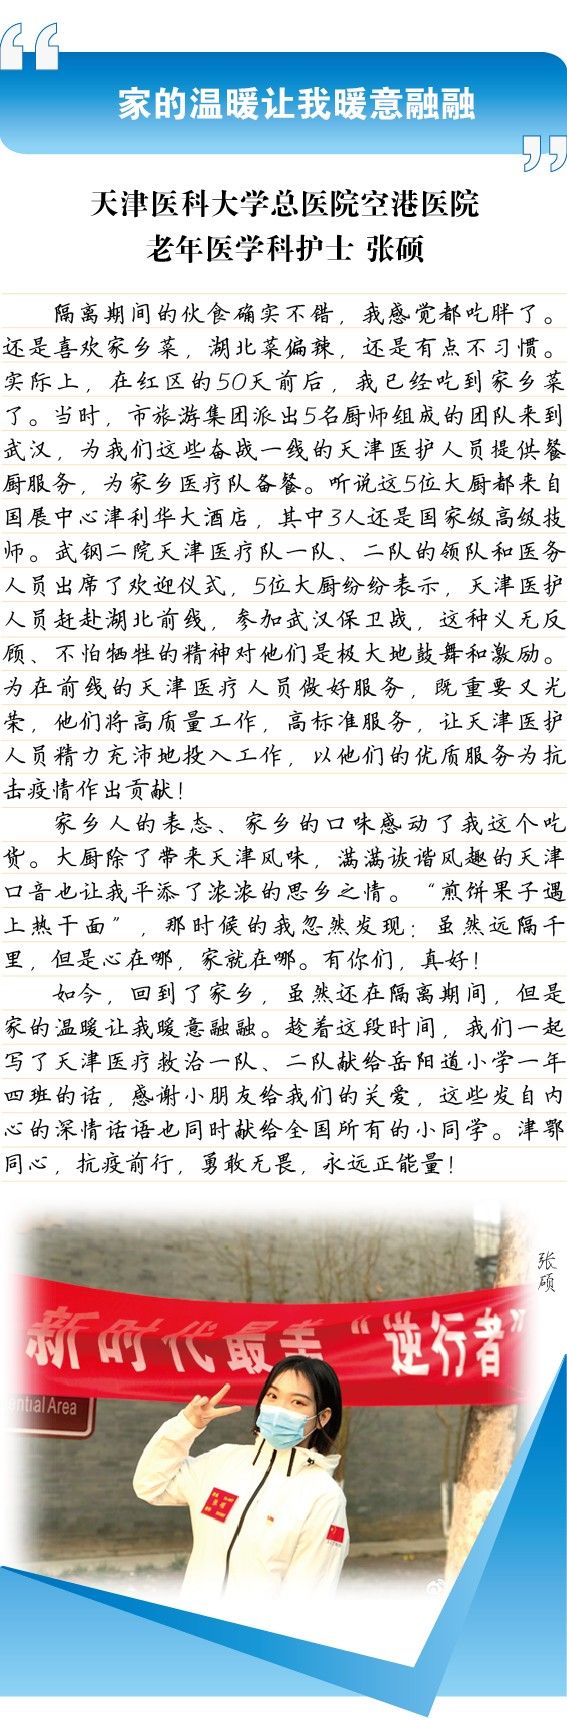 家的温暖让我暖意融融
天津医科大学总医院空港医院
老年医学科护士 张硕
隔离期间的伙食确实不错，我感觉都吃胖了。
还是喜欢家乡菜，湖北菜偏辣，还是有点不习惯。
实际上，在红区的50天前后，我已经吃到家乡菜
了。当时，市旅游集团派出5名厨师组成的团队来到
武汉，为我们这些奋战一线的天津医护人员提供餐
厨服务，为家乡医疗队备餐。听说这5位大厨都来自
国展中心津利华大酒店，其中3人还是国家级高级技
师。武钢二院天津医疗队一队、二队的领队和医务
人员出席了欢迎仪式，5位大厨纷纷表示，天津医护
人员赶赴湖北前线，参加武汉保卫战，这种义无反
顾、不怕牺牲的精神对他们是极大地鼓舞和激励。
为在前线的天津医疗人员做好服务，既重要又光
荣，他们将高质量工作，高标准服务，让天津医护
人员精力充沛地投入工作，以他们的优质服务为抗
击疫情作出贡献！
家乡人的表态、家乡的口味感动了我这个吃
货。大厨除了带来天津风味，满满诙谐风趣的天津
口音也让我平添了浓浓的思乡之情。“煎饼果子遇
上热干面”，那时候的我忽然发现：虽然远隔千
里，但是心在哪，家就在哪。有你们，真好！
如今，回到了家乡，虽然还在隔离期间，但是
家的温暖让我暖意融融。趁着这段时间，我们一起
写了天津医疗救治一队、二队献给岳阳道小学一年
四班的话，感谢小朋友给我们的关爱，这些发自内
心的深情话语也同时献给全国所有的小同学。津鄂
同心，抗疫前行，勇敢无畏，永远正能量！
张硕
新时代最美“逆行者”
ential Area